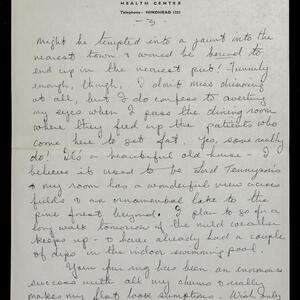 HEALTH CENTRE
Telephone: HINDHEAD 1251
- 3 -
might be tempted into a jaunt into the
nearest town & would be bound to
end up in the nearest pub! Funnily
enough, though, I don't miss drinking
at all, but I do confess to averting
my eyes when I pass the dining room
where they feed up the patients who
come here to get fat. Yes, some really
do! It's a beautiful old house - I
believe it used to be Lord Tennyson's
& my room has a wonderful view across
fields & an ornamental lake to the
pine forest beyond. I plan to go for a
long walk tomorrow if the mild weather
keeps up - & have already had a couple
of dips in the indoor swimming pool.
Your fur rug has been an enormous
success with all my chums & really
makes my flat look sumptuous.